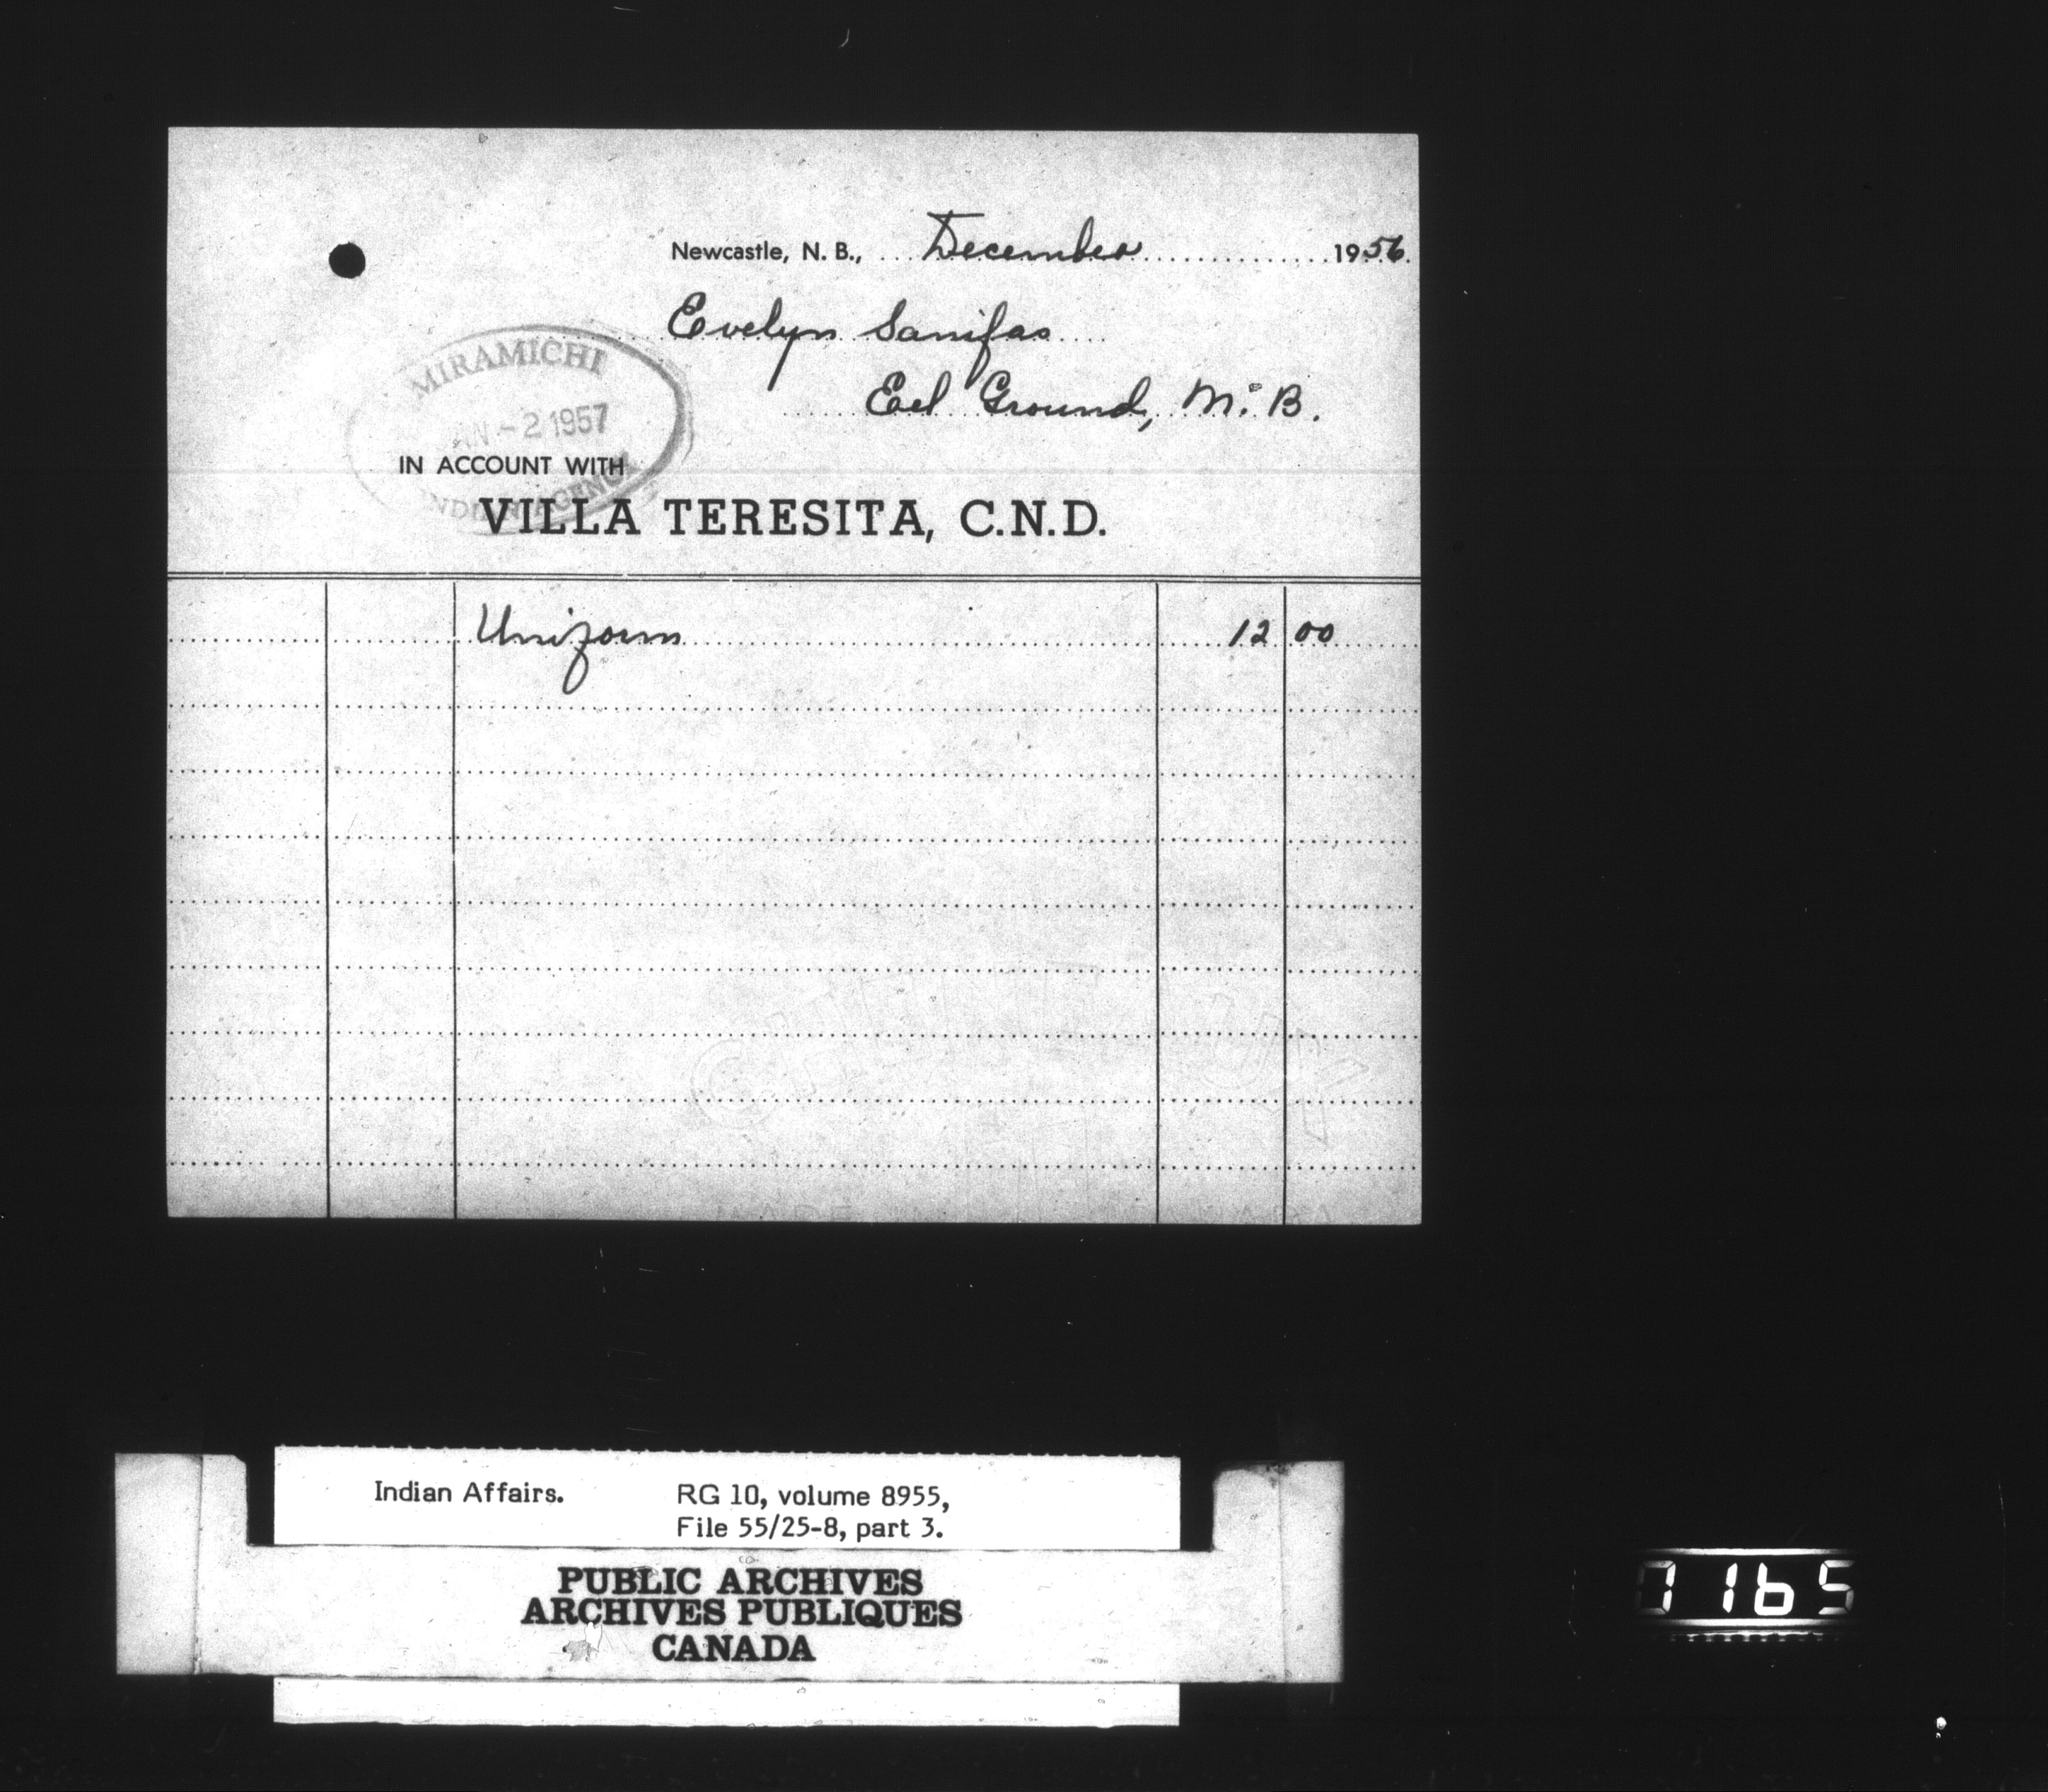 Newcastle, N. B., December 1956
Evelyn Sanifas
Eel Ground, N. B.
MIRAMICHI
JAN - 2 1957
INDIAN AGENCY
IN ACCOUNT WITH
VILLA TERESITA, C.N.D.
Uniform 12 00
Indian Affairs. RG 10, volume 8955,
File 55/25-8, part 3.
PUBLIC ARCHIVES
ARCHIVES PUBLIQUES
CANADA
7165